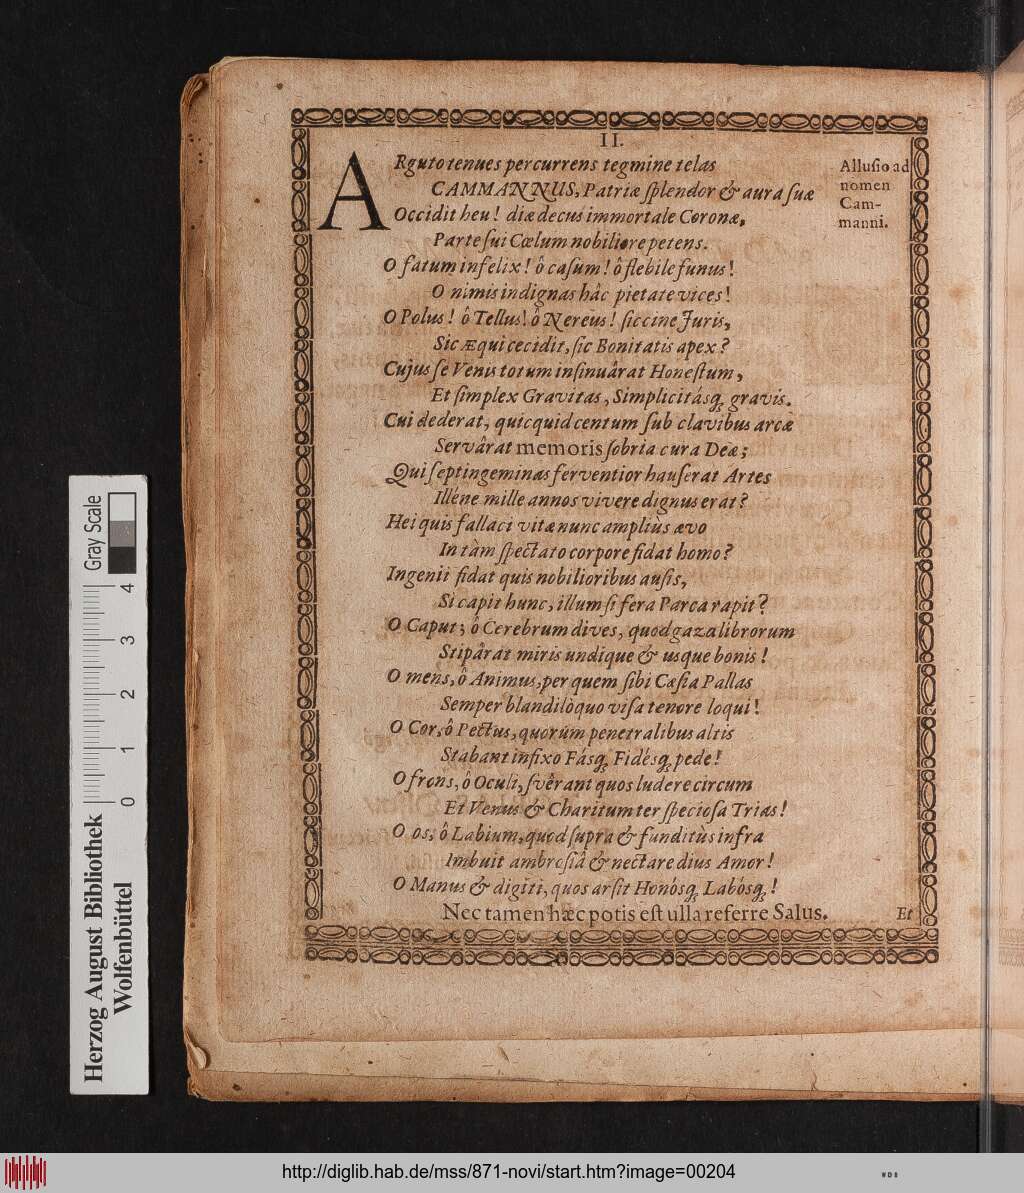 II.
ARguto tenues percurrens tegmine telas
CAMMANNUS, Patriæ ſplendor & aura ſuæ
Occidit heu! diæ decus immortale Coronæ,
Parte ſui Cœlum nobiliore petens.
O fatum infelix! ô caſum! ô flebile funus!
O nimis indignas hâc pietate vices!
O Polus! ô Tellus! ô Nereus! ſiccine Juris,
Sic Æqui cecidit, ſic Bonitatis apex?
Cujus ſe Venis totum inſinuârat Honeſtum,
Et ſimplex Gravitas, Simplicitásq; gravis.
Cui dederat, quicquid centum ſub clavibus arcæ
Servârat memoris ſobria cura Deæ;
Qui ſeptingeminas ferventior hauſerat Artes
Illéne mille annos vivere dignus erat?
Hei quis fallaci vitæ nunc ampliùs ævo
In tàm ſpectato corpore fidat homo?
Ingenii fidat quis nobilioribus auſis,
Si capit hunc, illum ſi fera Parca rapit?
O Caput; ô Cerebrum dives, quod gaza librorum
Stipârat miris undique & usque bonis!
O mens, ô Animus, per quem ſibi Cæſia Pallas
Semper blandilòquo viſa tenore loqui!
O Cor, ô Pectus, quorum penetralibus altis
Stabant infixo Fásq; Fidésq; pede!
O frons, ô Oculi, ſvêrant quos ludere circum
Et Venus & Charitum ter ſpecioſa Trias!
O os, ô Labium, quod ſupra & funditùs infra
Imbuit ambroſiâ & nectare dius Amor!
O Manus & digiti, quos arſit Honósq; Labósq;!
Nec tamen hæc potis eſt ulla referre Salus.
Et
Alluſio ad
nomen
Cam-
manni.
Gray Scale
0 1 2 3 4
Herzog August Bibliothek
Wolfenbüttel
http://diglib.hab.de/mss/871-novi/start.htm?image=00204